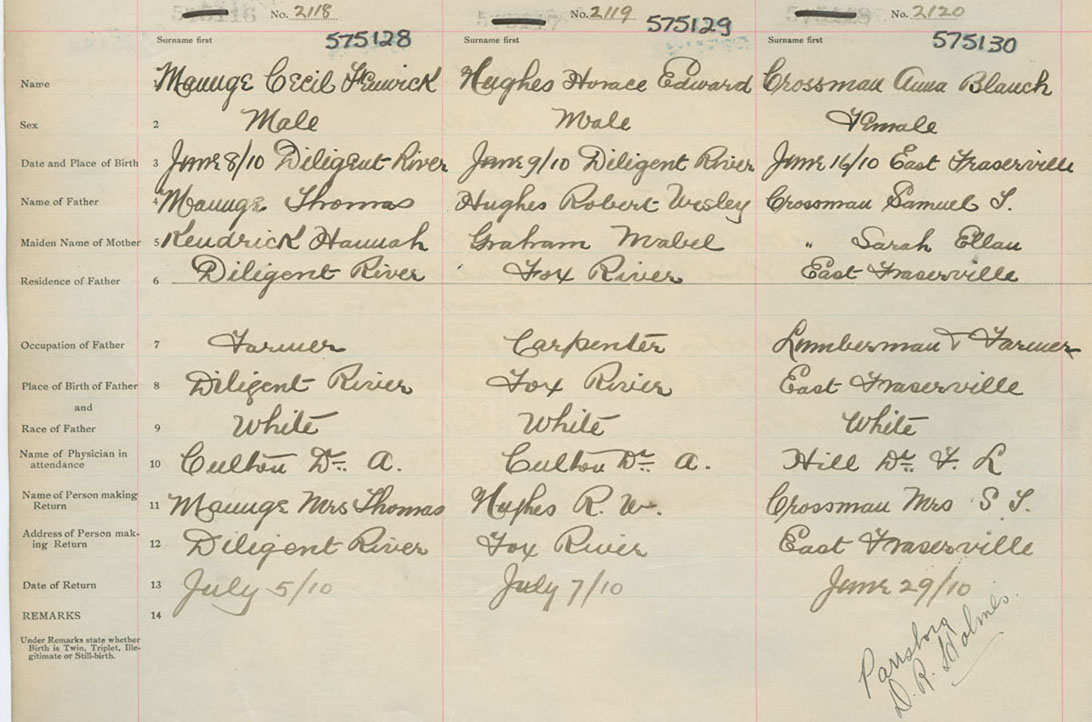 No. 2118 No. 2119 No. 2120
Surname first 575128 Surname first 575129 Surname first 575130
Name 1 Mauuge Cecil Fenwick Hughes Horace Edward Crossman Anna Blauch
Sex 2 Male Male Female
Date and Place of Birth 3 June 8/10 Diligent River June 9/10 Diligent River June 16/10 East Fraserville
Name of Father 4 Mauuge Thomas Hughes Robert Wesley Crossman Samuel T.
Maiden Name of Mother 5 Kendrick Hannah Graham Mabel " Sarah Ellan
Residence of Father 6 Diligent River Fox River East Fraserville
Occupation of Father 7 Farmer Carpenter Lumberman & Farmer
Place of Birth of Father 8 Diligent River Fox River East Fraserville
and
Race of Father 9 White White White
Name of Physician in
attendance 10 Culton Dr. A. Culton Dr. A. Hill Dr. F. L
Name of Person making
Return 11 Mauuge Mrs Thomas Hughes R. W. Crossman Mrs S T.
Address of Person mak-
ing Return 12 Diligent River Fox River East Fraserville
Date of Return 13 July 5/10 July 7/10 June 29/10
REMARKS 14
Under Remarks state whether
Birth is Twin, Triplet, Ille-
gitimate or Still-birth.
Parrsboro
D. R. Holmes.